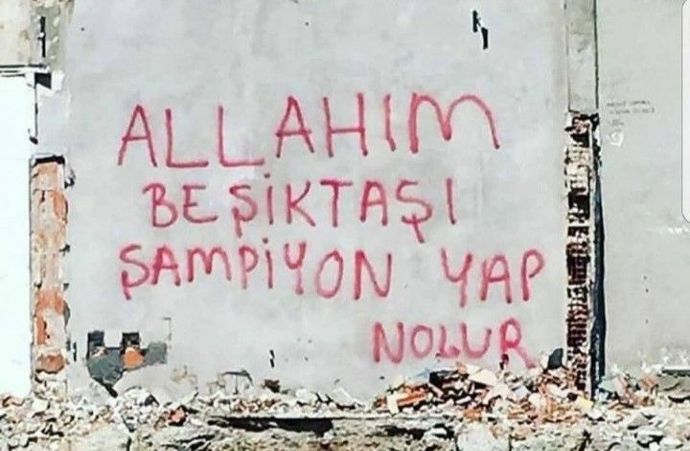 ALLAHIM
BEŞİKTAŞI
ŞAMPİYON YAP
NOLUR